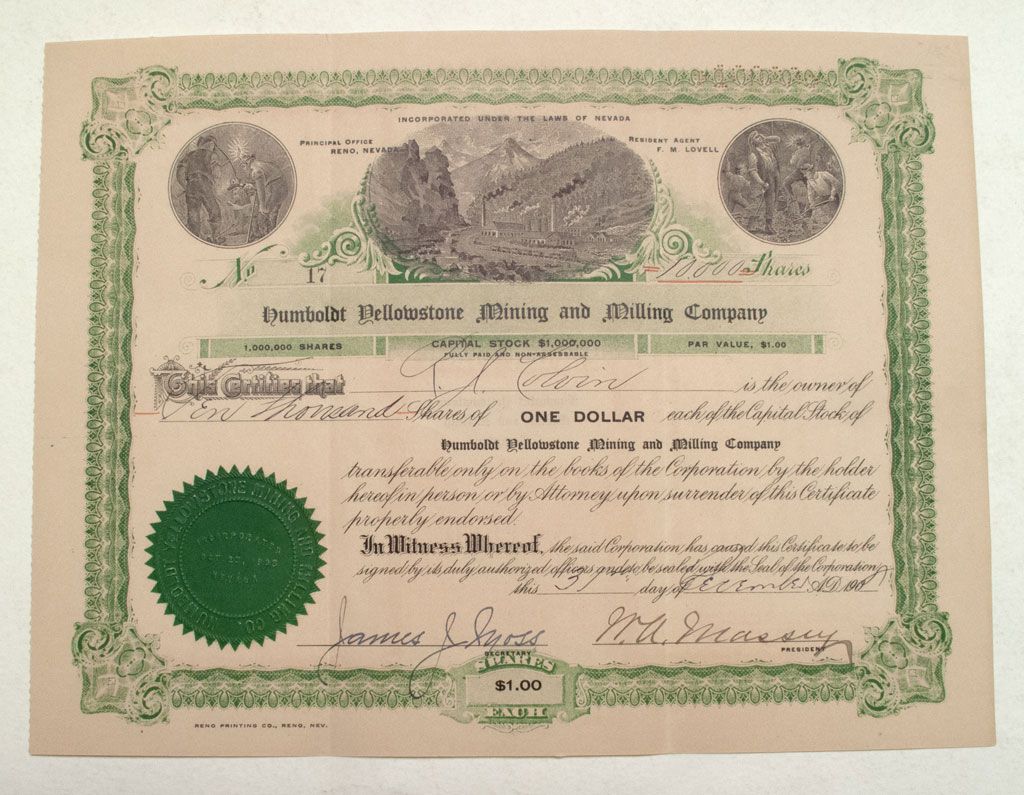 INCORPORATED UNDER THE LAWS OF NEVADA
PRINCIPAL OFFICE
RENO, NEVADA
RESIDENT AGENT
F. M. LOVELL
No 17
=10000= Shares
Humboldt Yellowstone Mining and Milling Company
1,000,000 SHARES
CAPITAL STOCK $1,000,000
FULLY PAID AND NON-ASSESSABLE
PAR VALUE, $1.00
This Certifies that Colvin is the owner of
Ten Thousand Shares of ONE DOLLAR each of the Capital Stock of
Humboldt Yellowstone Mining and Milling Company
transferable only on the books of the Corporation by the holder
hereof in person or by Attorney upon surrender of this Certificate
properly endorsed.
In Witness Whereof, the said Corporation has caused this Certificate to be
signed by its duly authorized officers and to be sealed with the Seal of the Corporation
this 3 day of December A.D. 190
HUMBOLDT YELLOWSTONE MINING AND MILLING CO.
INCORPORATED
NEVADA
James J Moss
SECRETARY
W. A. Massey
PRESIDENT
SHARES
$1.00
EACH
RENO PRINTING CO., RENO, NEV.